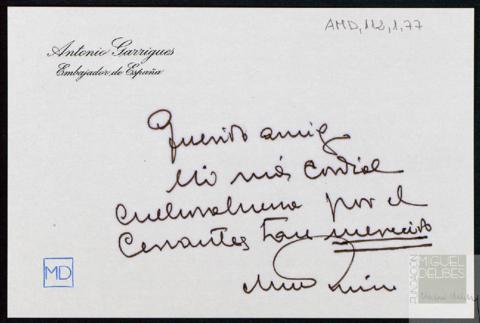 AMD,112,1,77
Antonio Garrigues
Embajador de España
Querido amigo
Mi más cordial
enhorabuena por el
Cervantes tan merecido
MD
FUNDACIÓN
MIGUEL
DELIBES